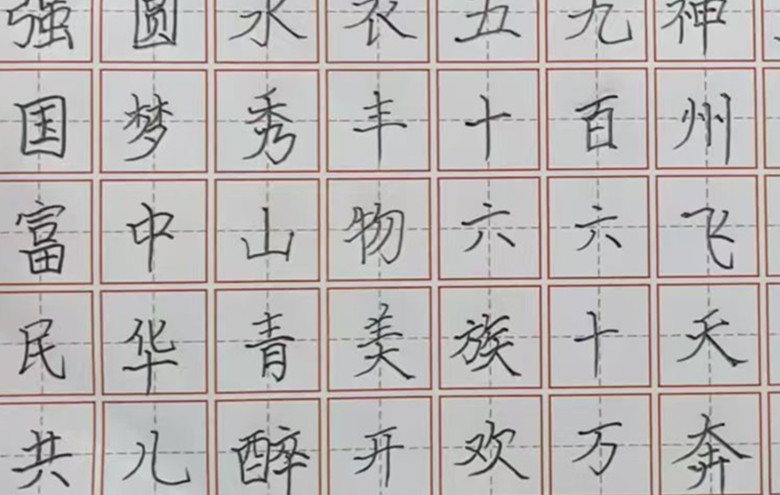 神州飞天奔
九百六十万
五十六族欢
衣丰物美开
水秀山青醉
圆梦中华儿
强国富民共